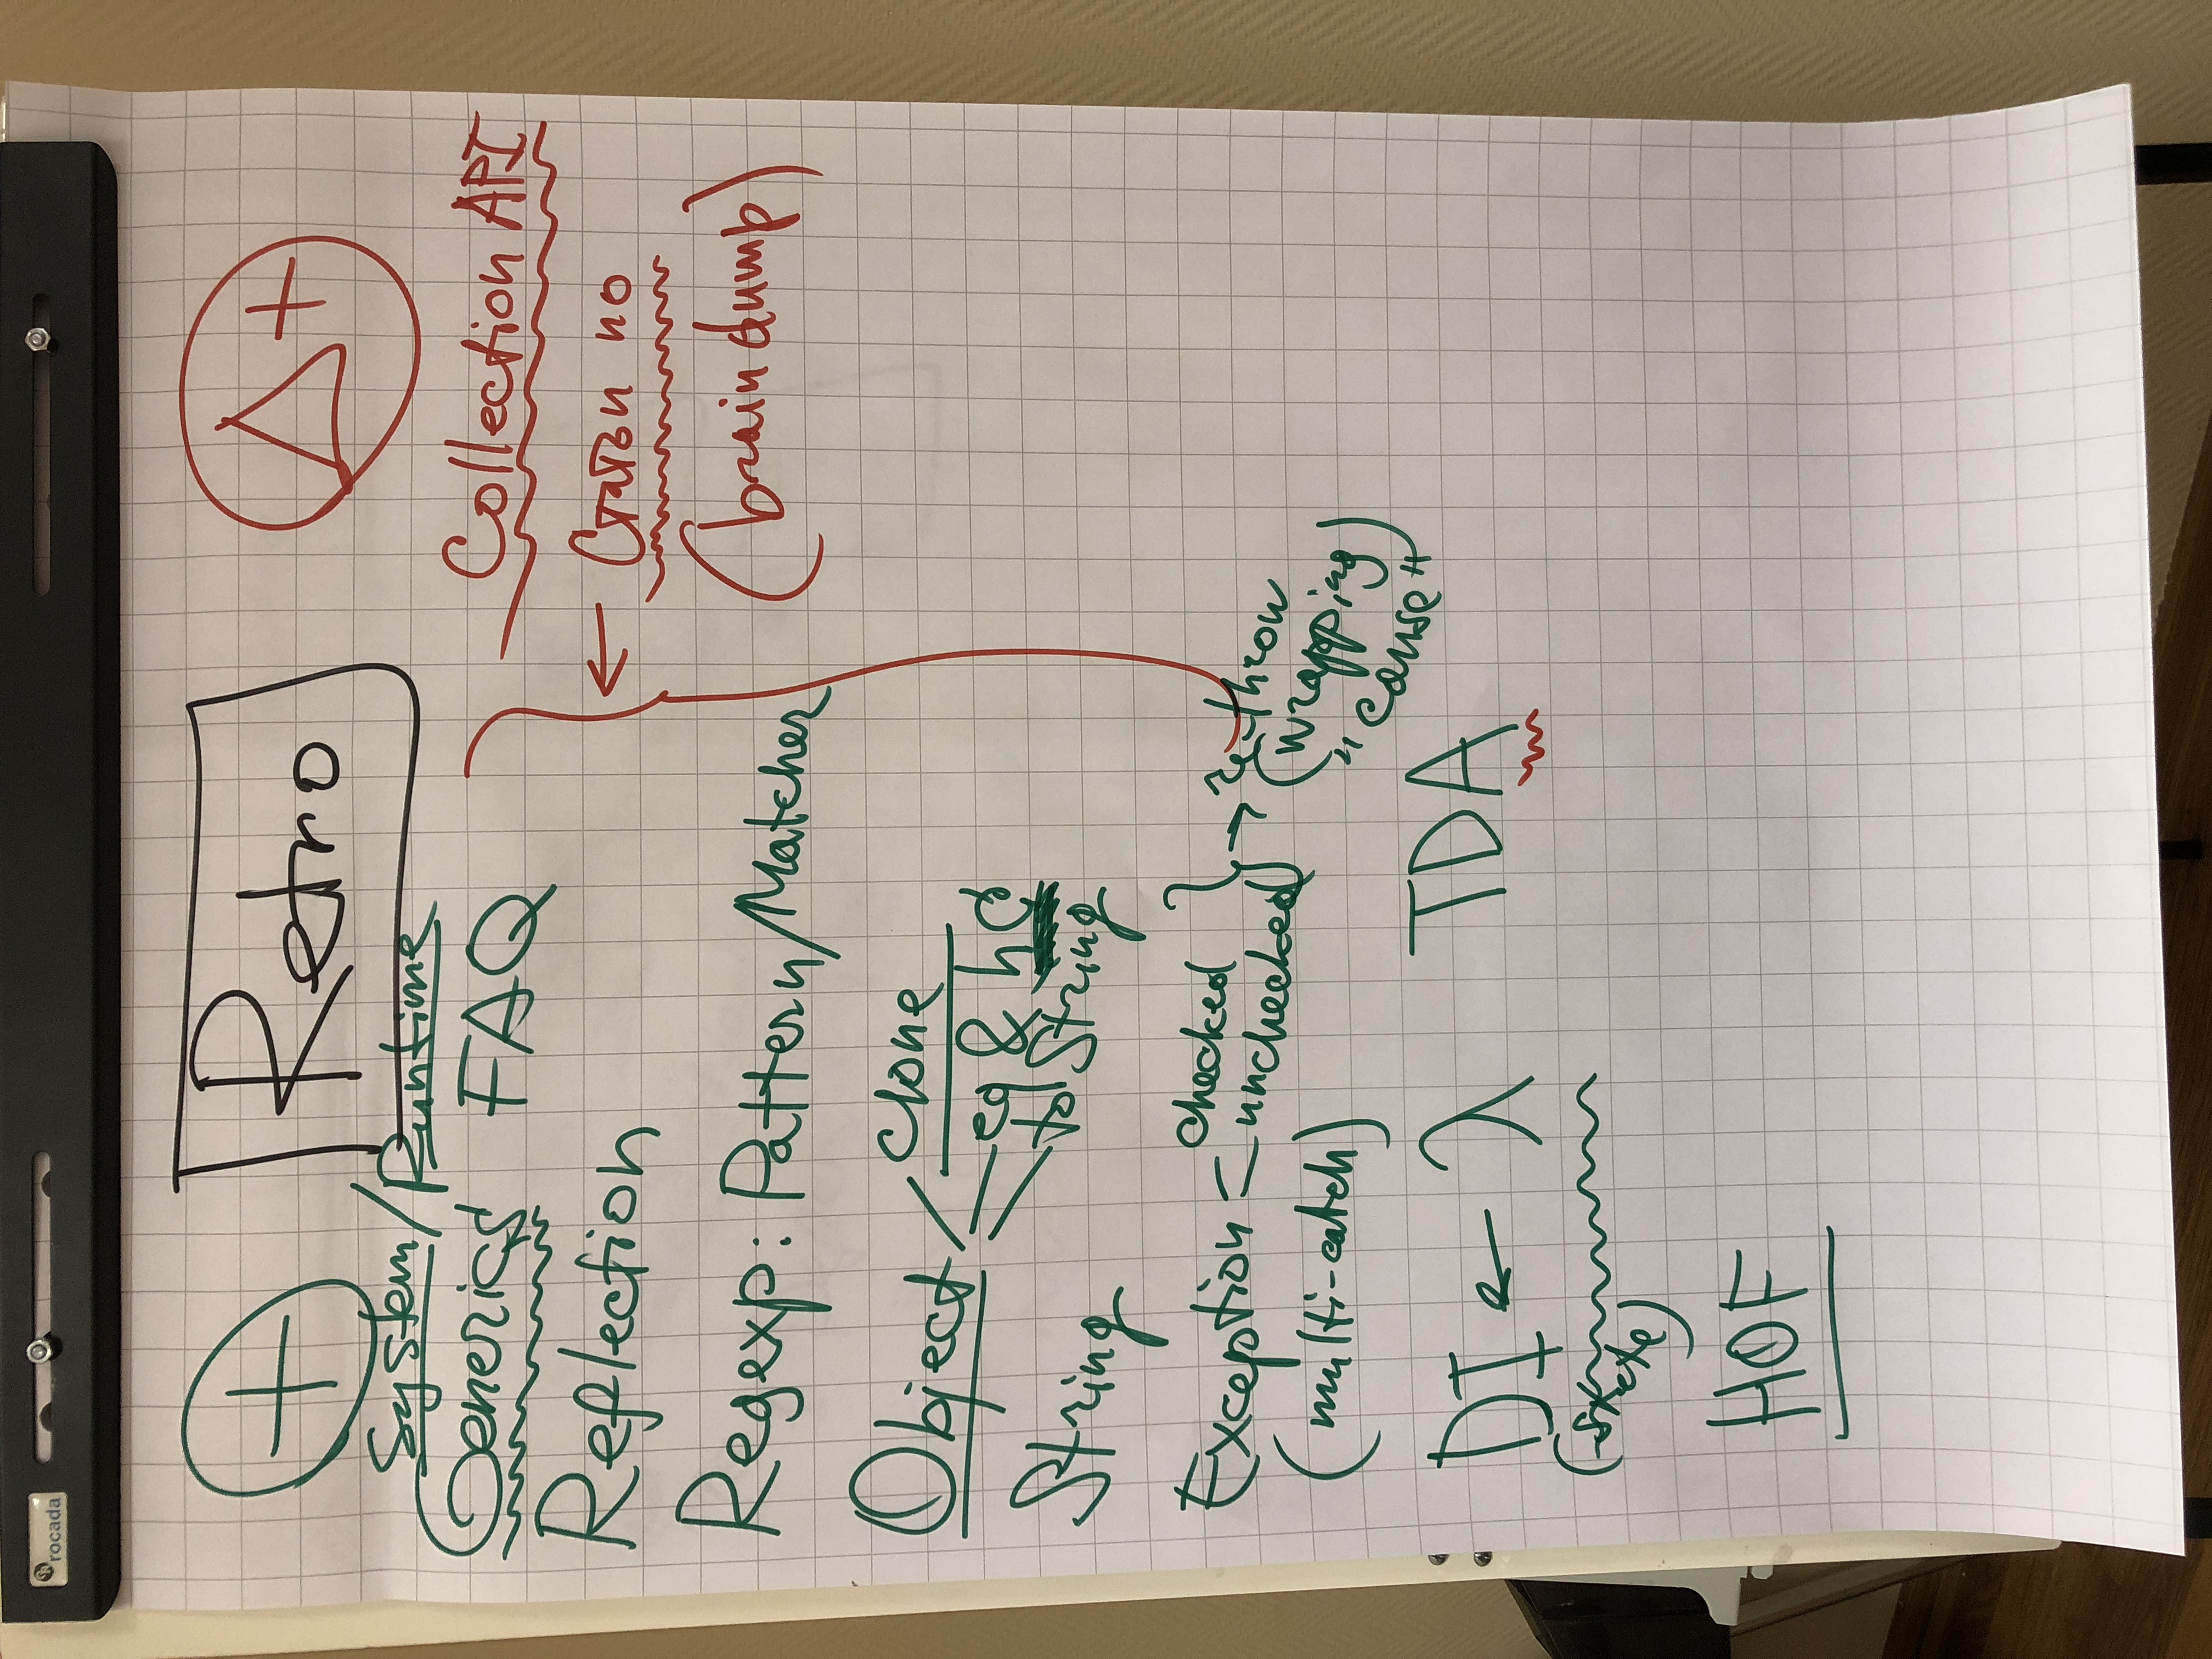 rocada
+
Retro
Δ+
System/Runtime
Generics FAQ
Reflection
Regexp: Pattern/Matcher
Object
clone
eq & hC
toString
String
Exception
checked
unchecked
→ re-throw
(wrapping
"cause")
(multi-catch)
DI ← λ
TDA
HOF
Collection API
← Статьи по
(braindump)